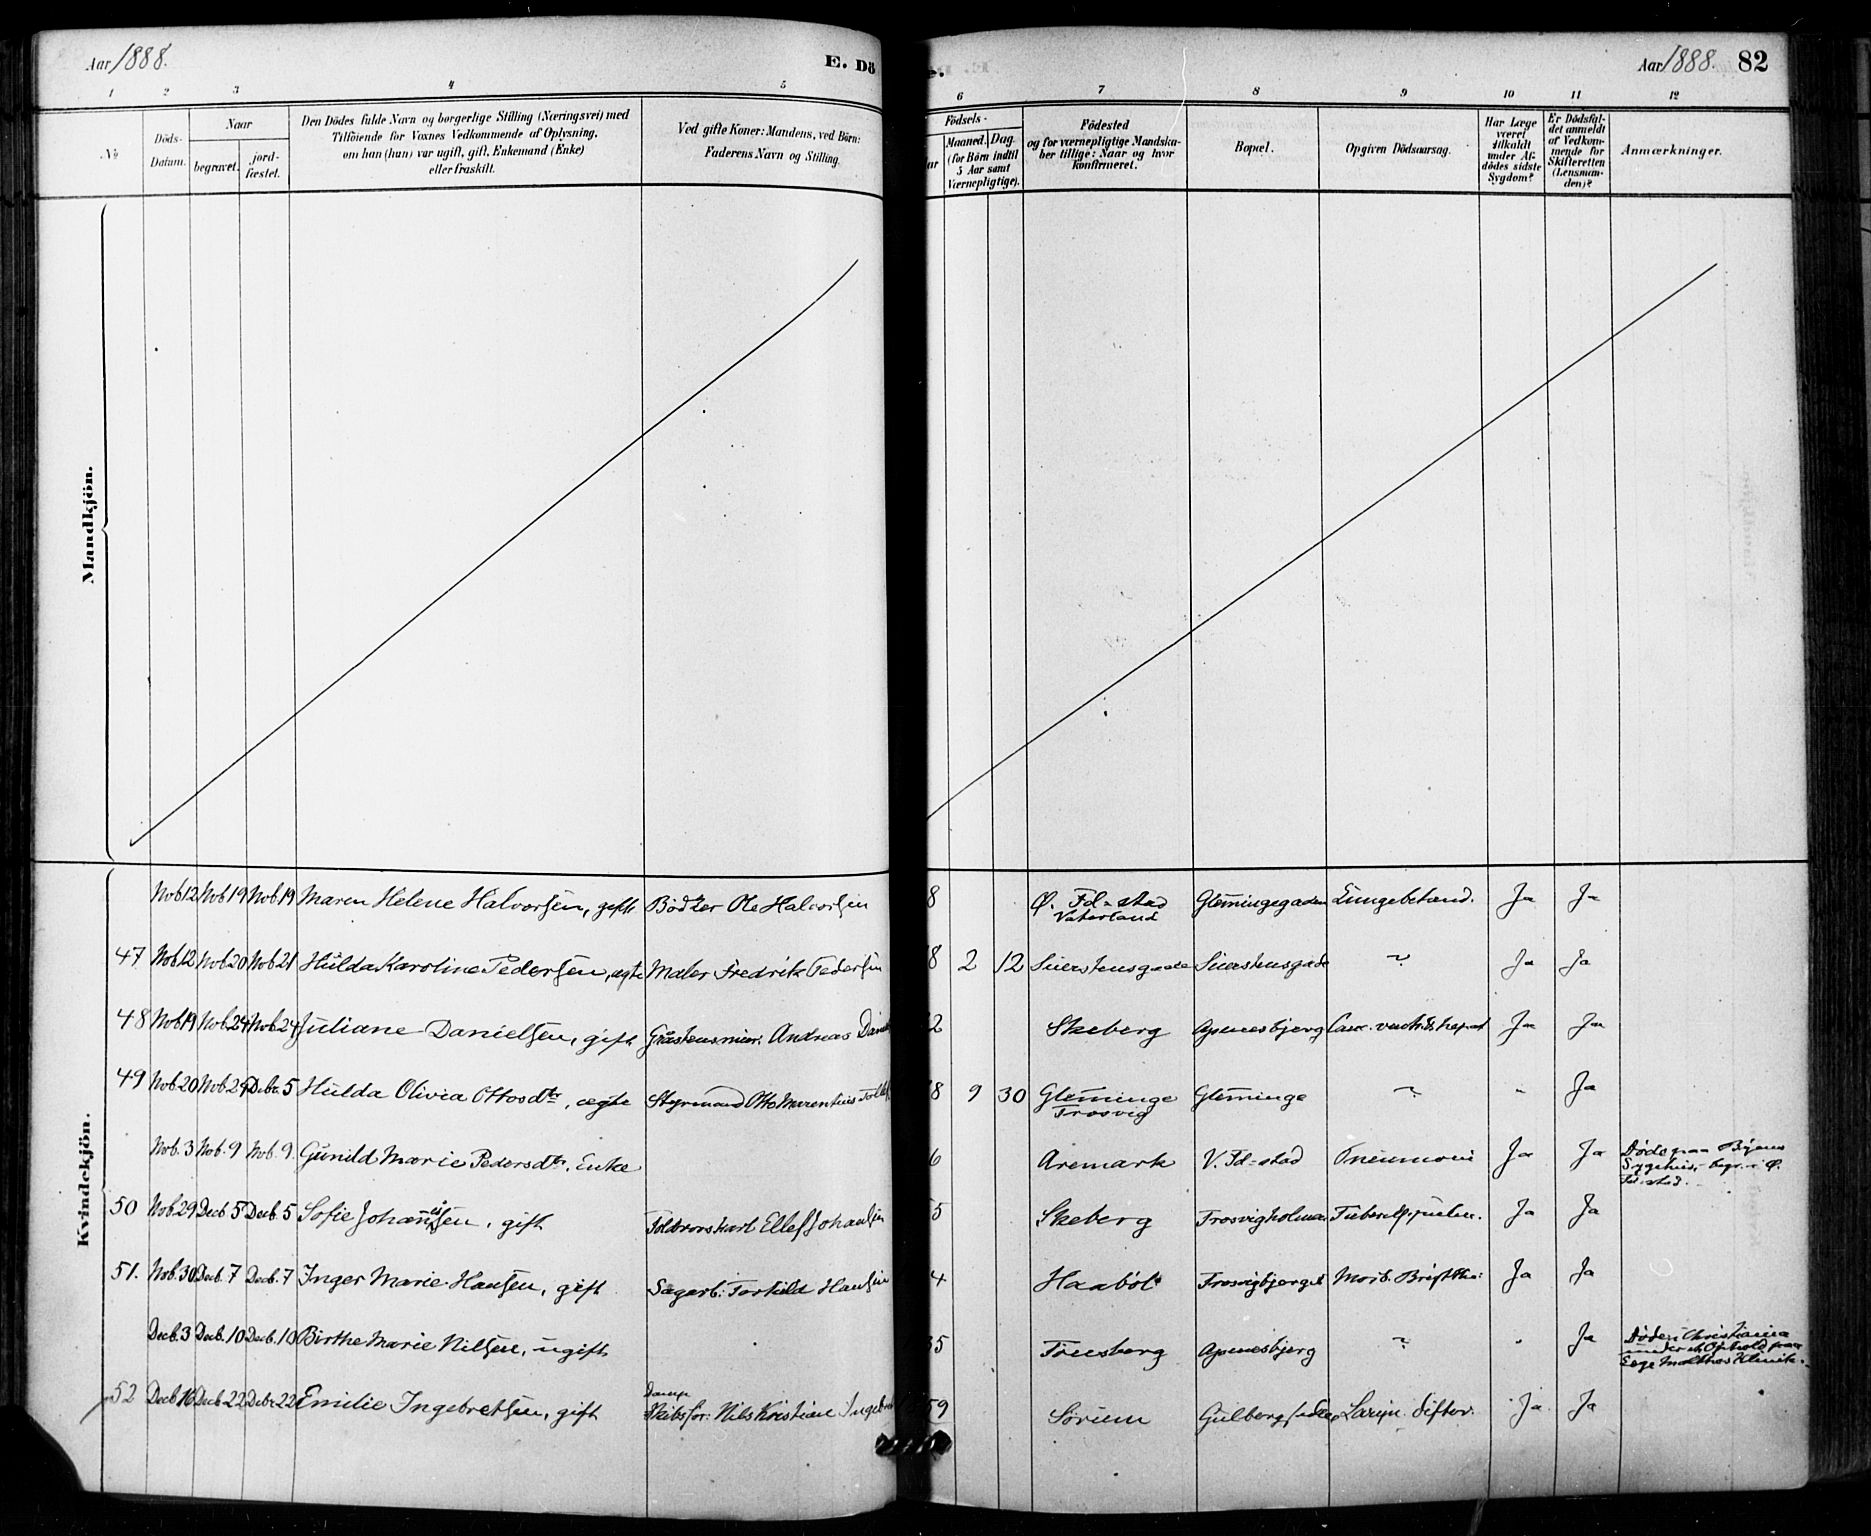 Aar 1888. E. Dö
Aar 1888. 82
1 2 3 4 5
6 7 8 9 10 11 12
No
Döds-Datum.
Naar
begravet. jord-fæstet.
Den Dödes fulde Navn og borgerlige Stilling (Næringsvei) med
Tilföiende for Voxnes Vedkommende af Oplysning,
om han (hun) var ugift, gift, Enkemand (Enke)
eller fraskilt.
Ved gifte Koner: Mandens, ved Börn:
Faderens Navn og Stilling.
Födsels-
Maaned. Dag.
(for Börn indtil
5 Aar samt
Værnepligtige).
Födested
og for værnepligtige Mandska-
ber tillige: Naar og hvor
konfirmeret.
Bopæl.
Opgiven Dödsaarsag.
Har Læge
været
tilkaldt
under Af-
dödes sidste
Sygdom?
Er Dödsfal-
det anmeldt
af Vedkom-
mende for
Skifteretten
(Lensman-
den)?
Anmærkninger.
Mandkjön.
Kvindekjön.
Nob 12 Nob 19 Nob 19 Maren Helene Halvorsen, gift Bødker Ole Halvorsen 8 Ø. Fd-stad Vaterland Glemmingegaden Lungebetænd. Ja Ja
47 Nob 12 Nob 20 Nob 21 Hulda Karoline Pedersen, ægte Maler Fredrik Pedersen 8 2 12 " Ja Ja
48 Nob 19 Nob 24 Nob 24 Juliane Danielsen, gift Andreas 2 Skeberg Apenesbjerg Ja Ja
49 Nob 20 Nob 29 Debr 5 Hulda Olivia Ottosdtr, ægte Styrmand Otto Marentius 8 9 30 Glemminge Trosvig Glemminge " " Ja
Nob. 3 Nob. 9 Nob. 9 Gunild Marie Pedersdtr. Enke 6 Aremark V. Fd-stad Pneumoni Ja Ja Døde paa Byens
Sygehus, begr. i Ø.
Fd-stad.
50 Nob. 29 Decb 5 Decb. 5 Sofie Johannesen, gift Ellef Johansen 5 Skeberg Trosvigholmen Ja Ja
51. Nob. 30 Decb. 7 Decb. 7 Inger Marie Hansen, gift Sagarb: Torkild Hansen 4 Haabøl Trosvigbjerget Morb. Brightii: Ja Ja
Decb. 3 Decb. 10 Decb. 10 Birthe Marie Nilsen, ugift 35 Tønsberg Apenesbjerg " " Ja Døde i Christiania
under et Ophold paa
Malthes Klinik.
52 Decb 16 Decb 22 Debr 22 Emilie Ingebretsen, gift Damp Skibsfør: Nils Kristian Ingebret 59 Sørum Laryn. difter. Ja Ja